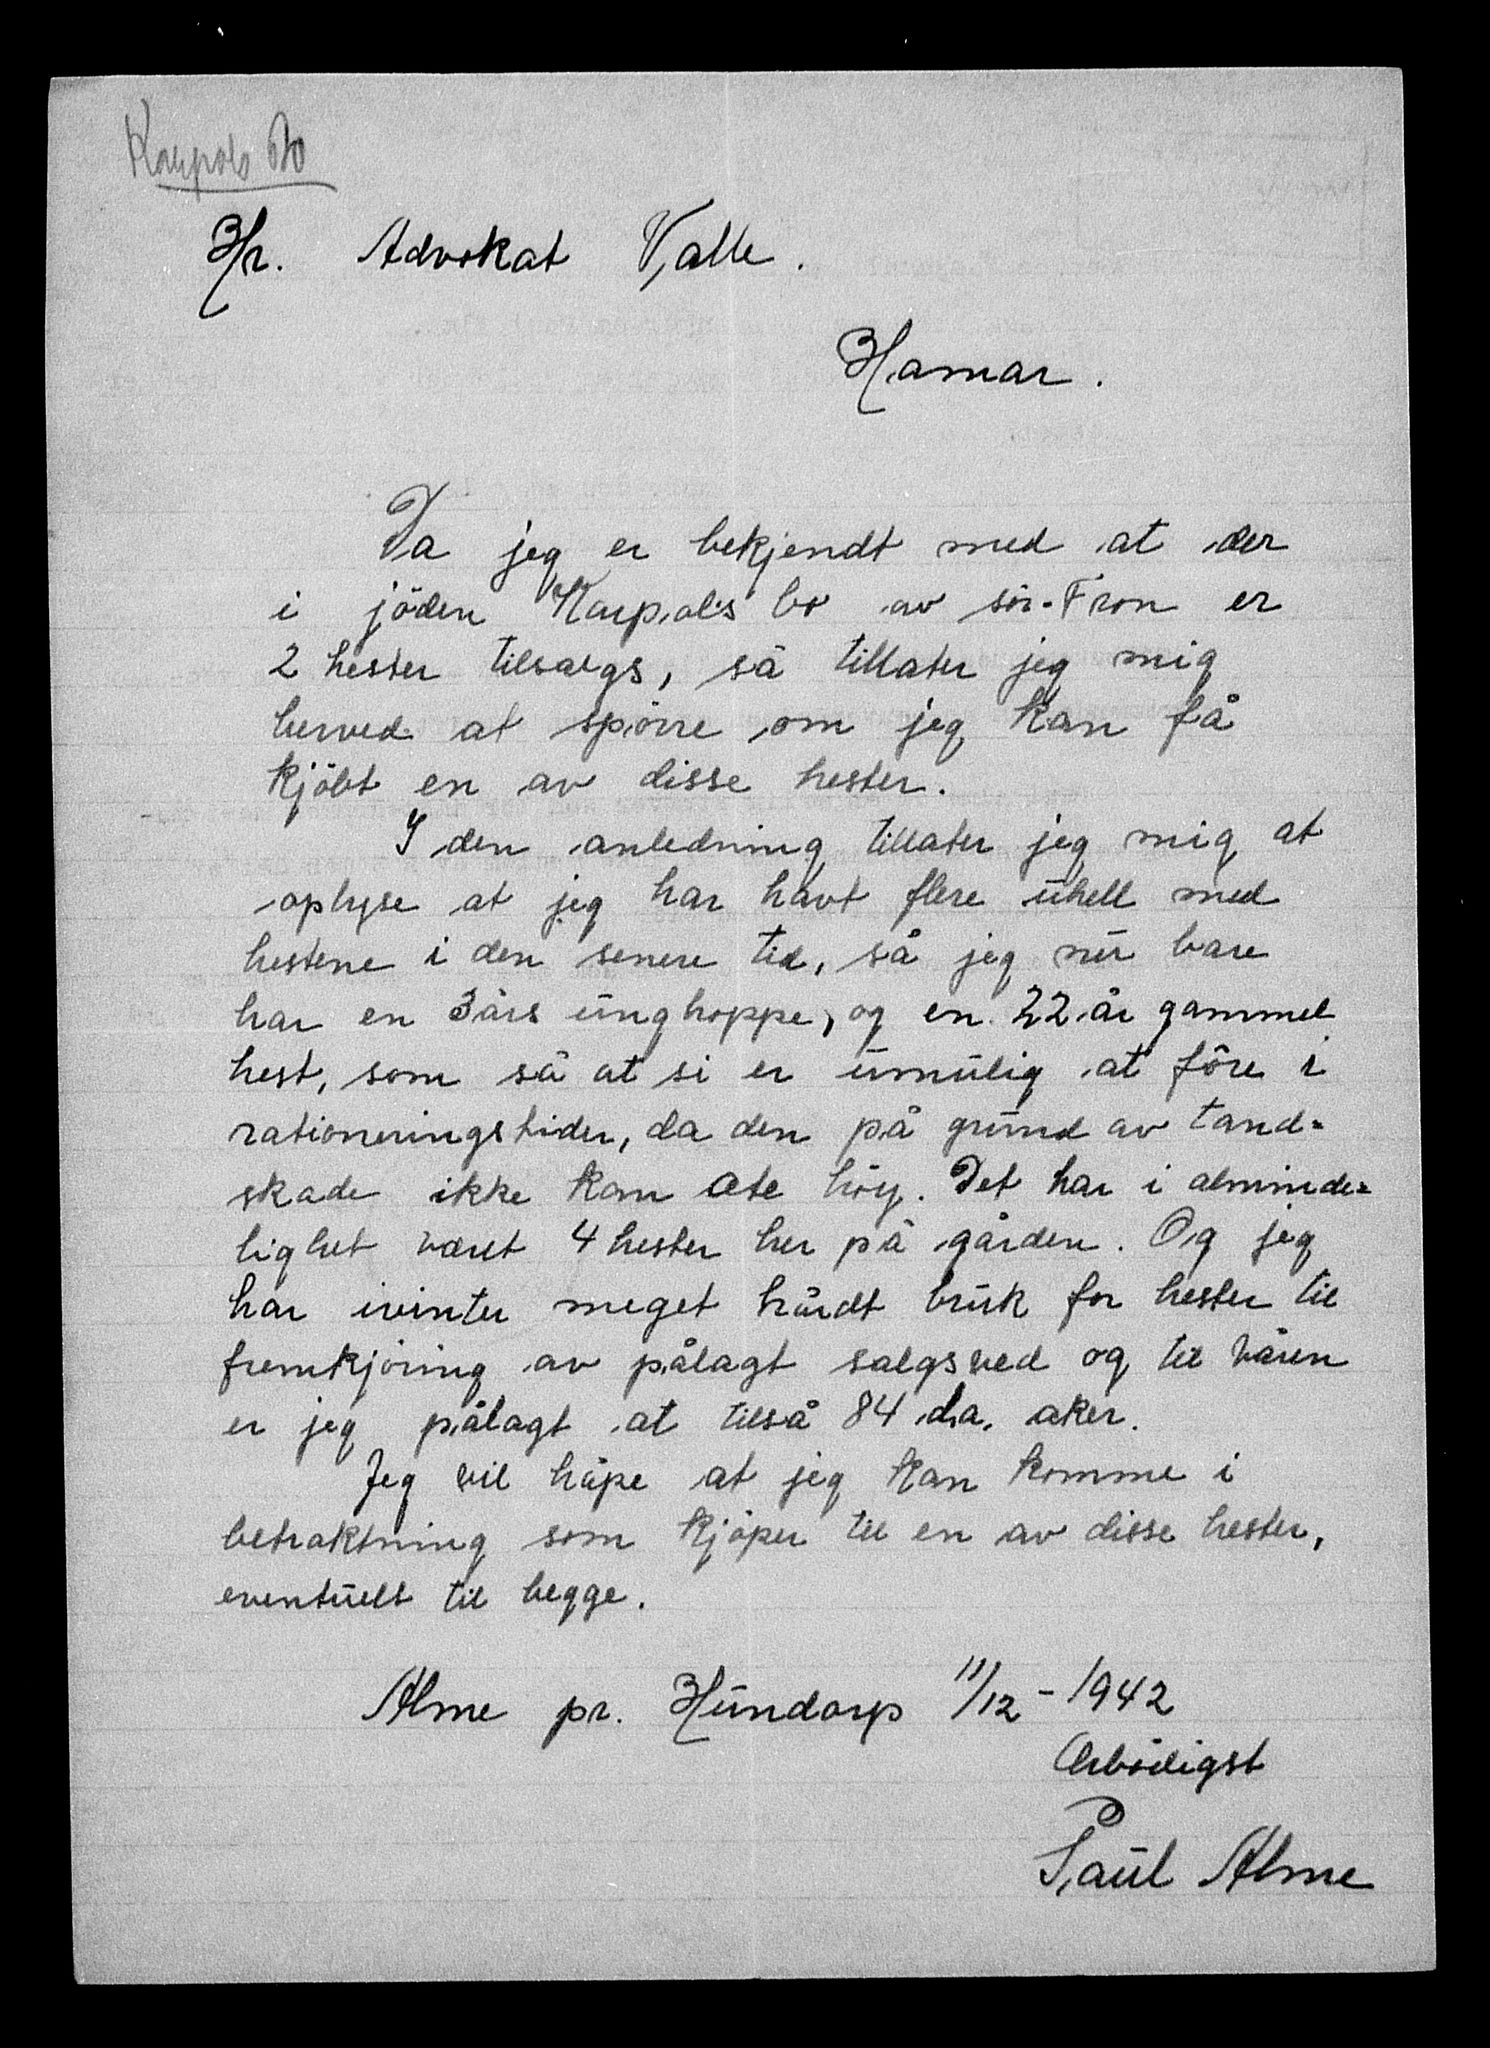 Karpols Bo
Hr. Advokat Valle.
Hamar.
Da jeg er bekjendt med at der
i jöden Karpols bo av sör-Fron er
2 hester tilsalgs, så tillater jeg mig
herved at spörre om jeg kan få
kjöbt en av disse hester.
I den anledning tillater jeg mig at
oplyse at jeg har havt flere uhell med
hestene i den senere tid, så jeg nu bare
har en 3 års unghoppe, og en 22 år gammel
hest, som så at si er umulig at fôre i
rationeringstider, da den på grund av tand-
skade ikke kan æte höy. Det har i alminde-
lighet været 4 hester her på gården. Og jeg
har ivinter meget hårdt bruk for hester til
fremkjöring av pålagt salgsved og til våren
er jeg pålagt at tilså 84 da. aker.
Jeg vil håpe at jeg kan komme i
betraktning som kjöper til en av disse hester,
eventuelt til begge.
Alme pr. Hundorp 11/12 - 1942
Ærbödigst
Paul Alme